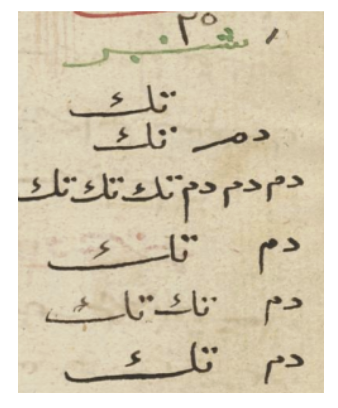 ٢٥
شنبر
تك
دم تك
دم دم دم تك تك تك
دم تاك
دم تاك تاك
دم تك